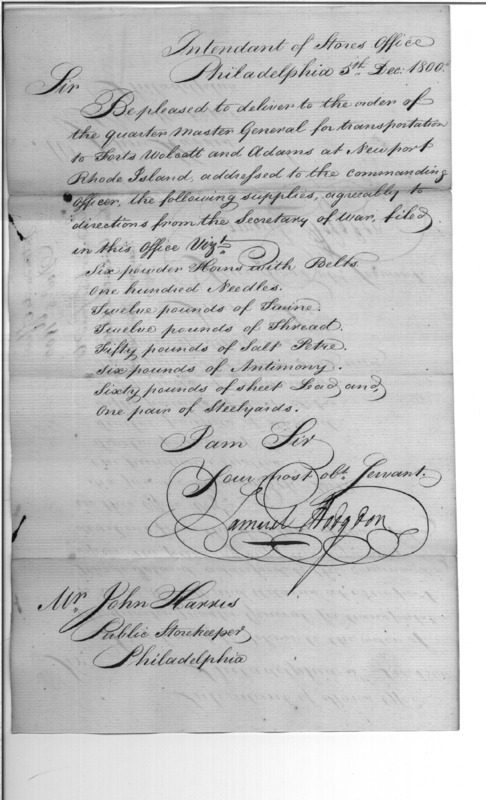 Intendant of Stores Office
Philadelphia 5th Dec: 1800.
Sir
Be pleased to deliver to the order of
the quarter Master General for transportation
to Forts Wolcott and Adams at Newport
Rhode Island, addressed to the commanding
Officer, the following supplies, agreeably to
directions from the Secretary of War, filed
in this Office Vizt.
Six powder Horns with Belts.
One hundred Needles.
Twelve pounds of Twine.
Twelve pounds of Thread.
Fifty pounds of Salt Petre.
Six pounds of Antimony.
Sixty pounds of sheet Lead, and,
One pair of Steelyards.
I am Sir
Your most obt. Servant.
Samuel Hodgdon
Mr. John Harris
Public Storekeeper
Philadelphia